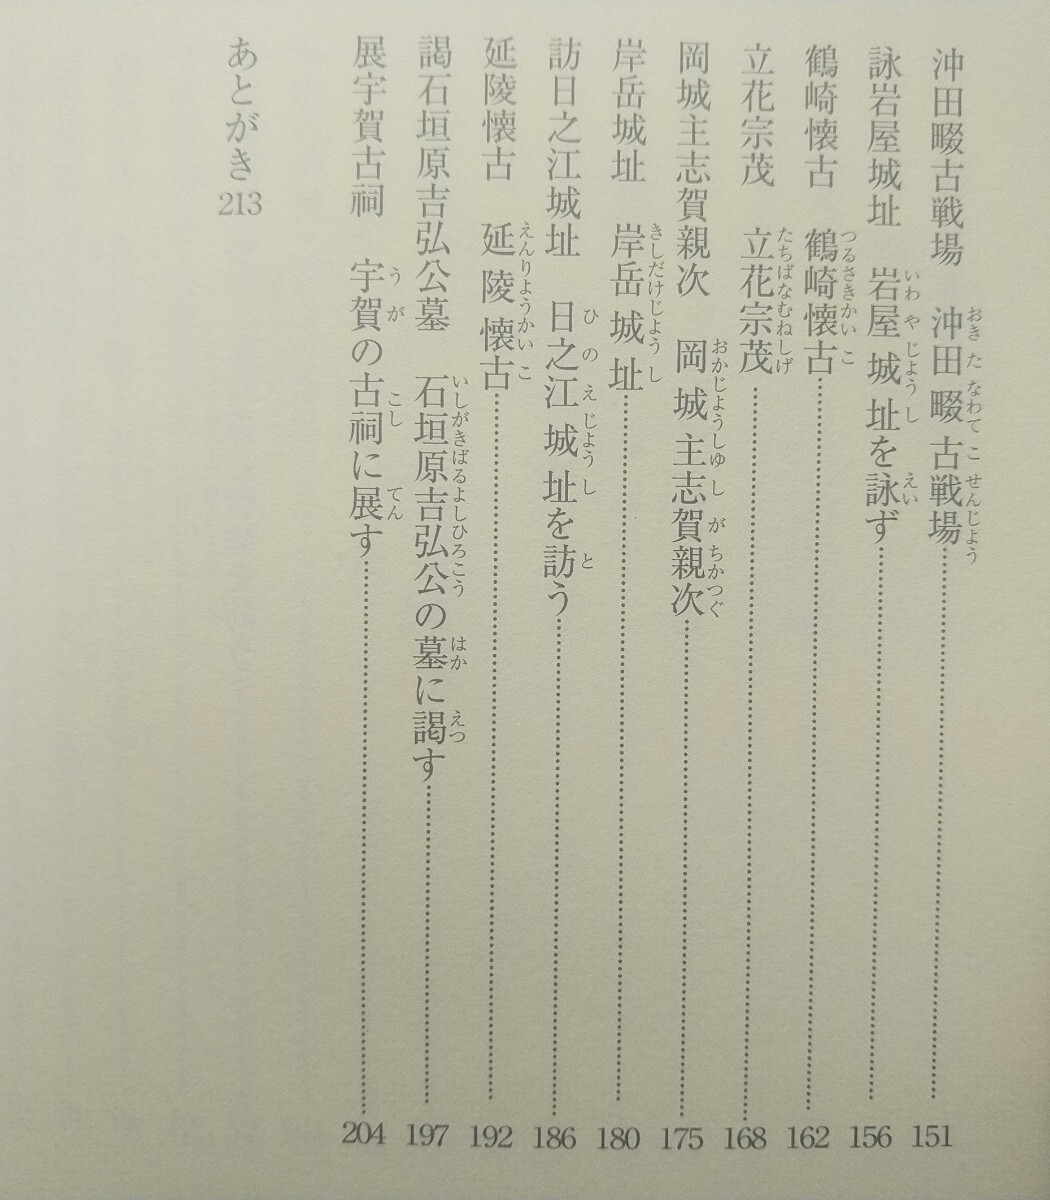 沖田畷古戦場　沖田畷古戦場……151
おきたなわてこせんじよう
詠岩屋城址　岩屋城址を詠ず……156
いわやじようし　えい
鶴崎懐古　鶴崎懐古……162
つるさきかいこ
立花宗茂　立花宗茂……168
たちばなむねしげ
岡城主志賀親次　岡城主志賀親次……175
おかじようしゆしがちかつぐ
岸岳城址　岸岳城址……180
きしだけじようし
訪日之江城址　日之江城址を訪う……186
ひのえじようし　と
延陵懐古　延陵懐古……192
えんりようかいこ
謁石垣原吉弘公墓　石垣原吉弘公の墓に謁す……197
いしがきばるよしひろこう　はか　えつ
展宇賀古祠　宇賀の古祠に展す……204
うが　こし　てん
あとがき 213